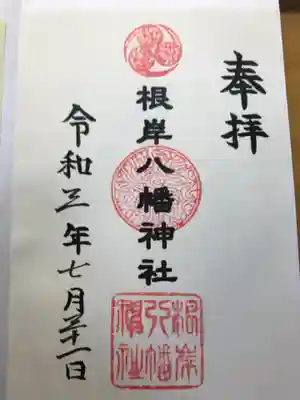 奉拝
根岸八幡神社
令和三年七月廿一日
根岸八幡神社